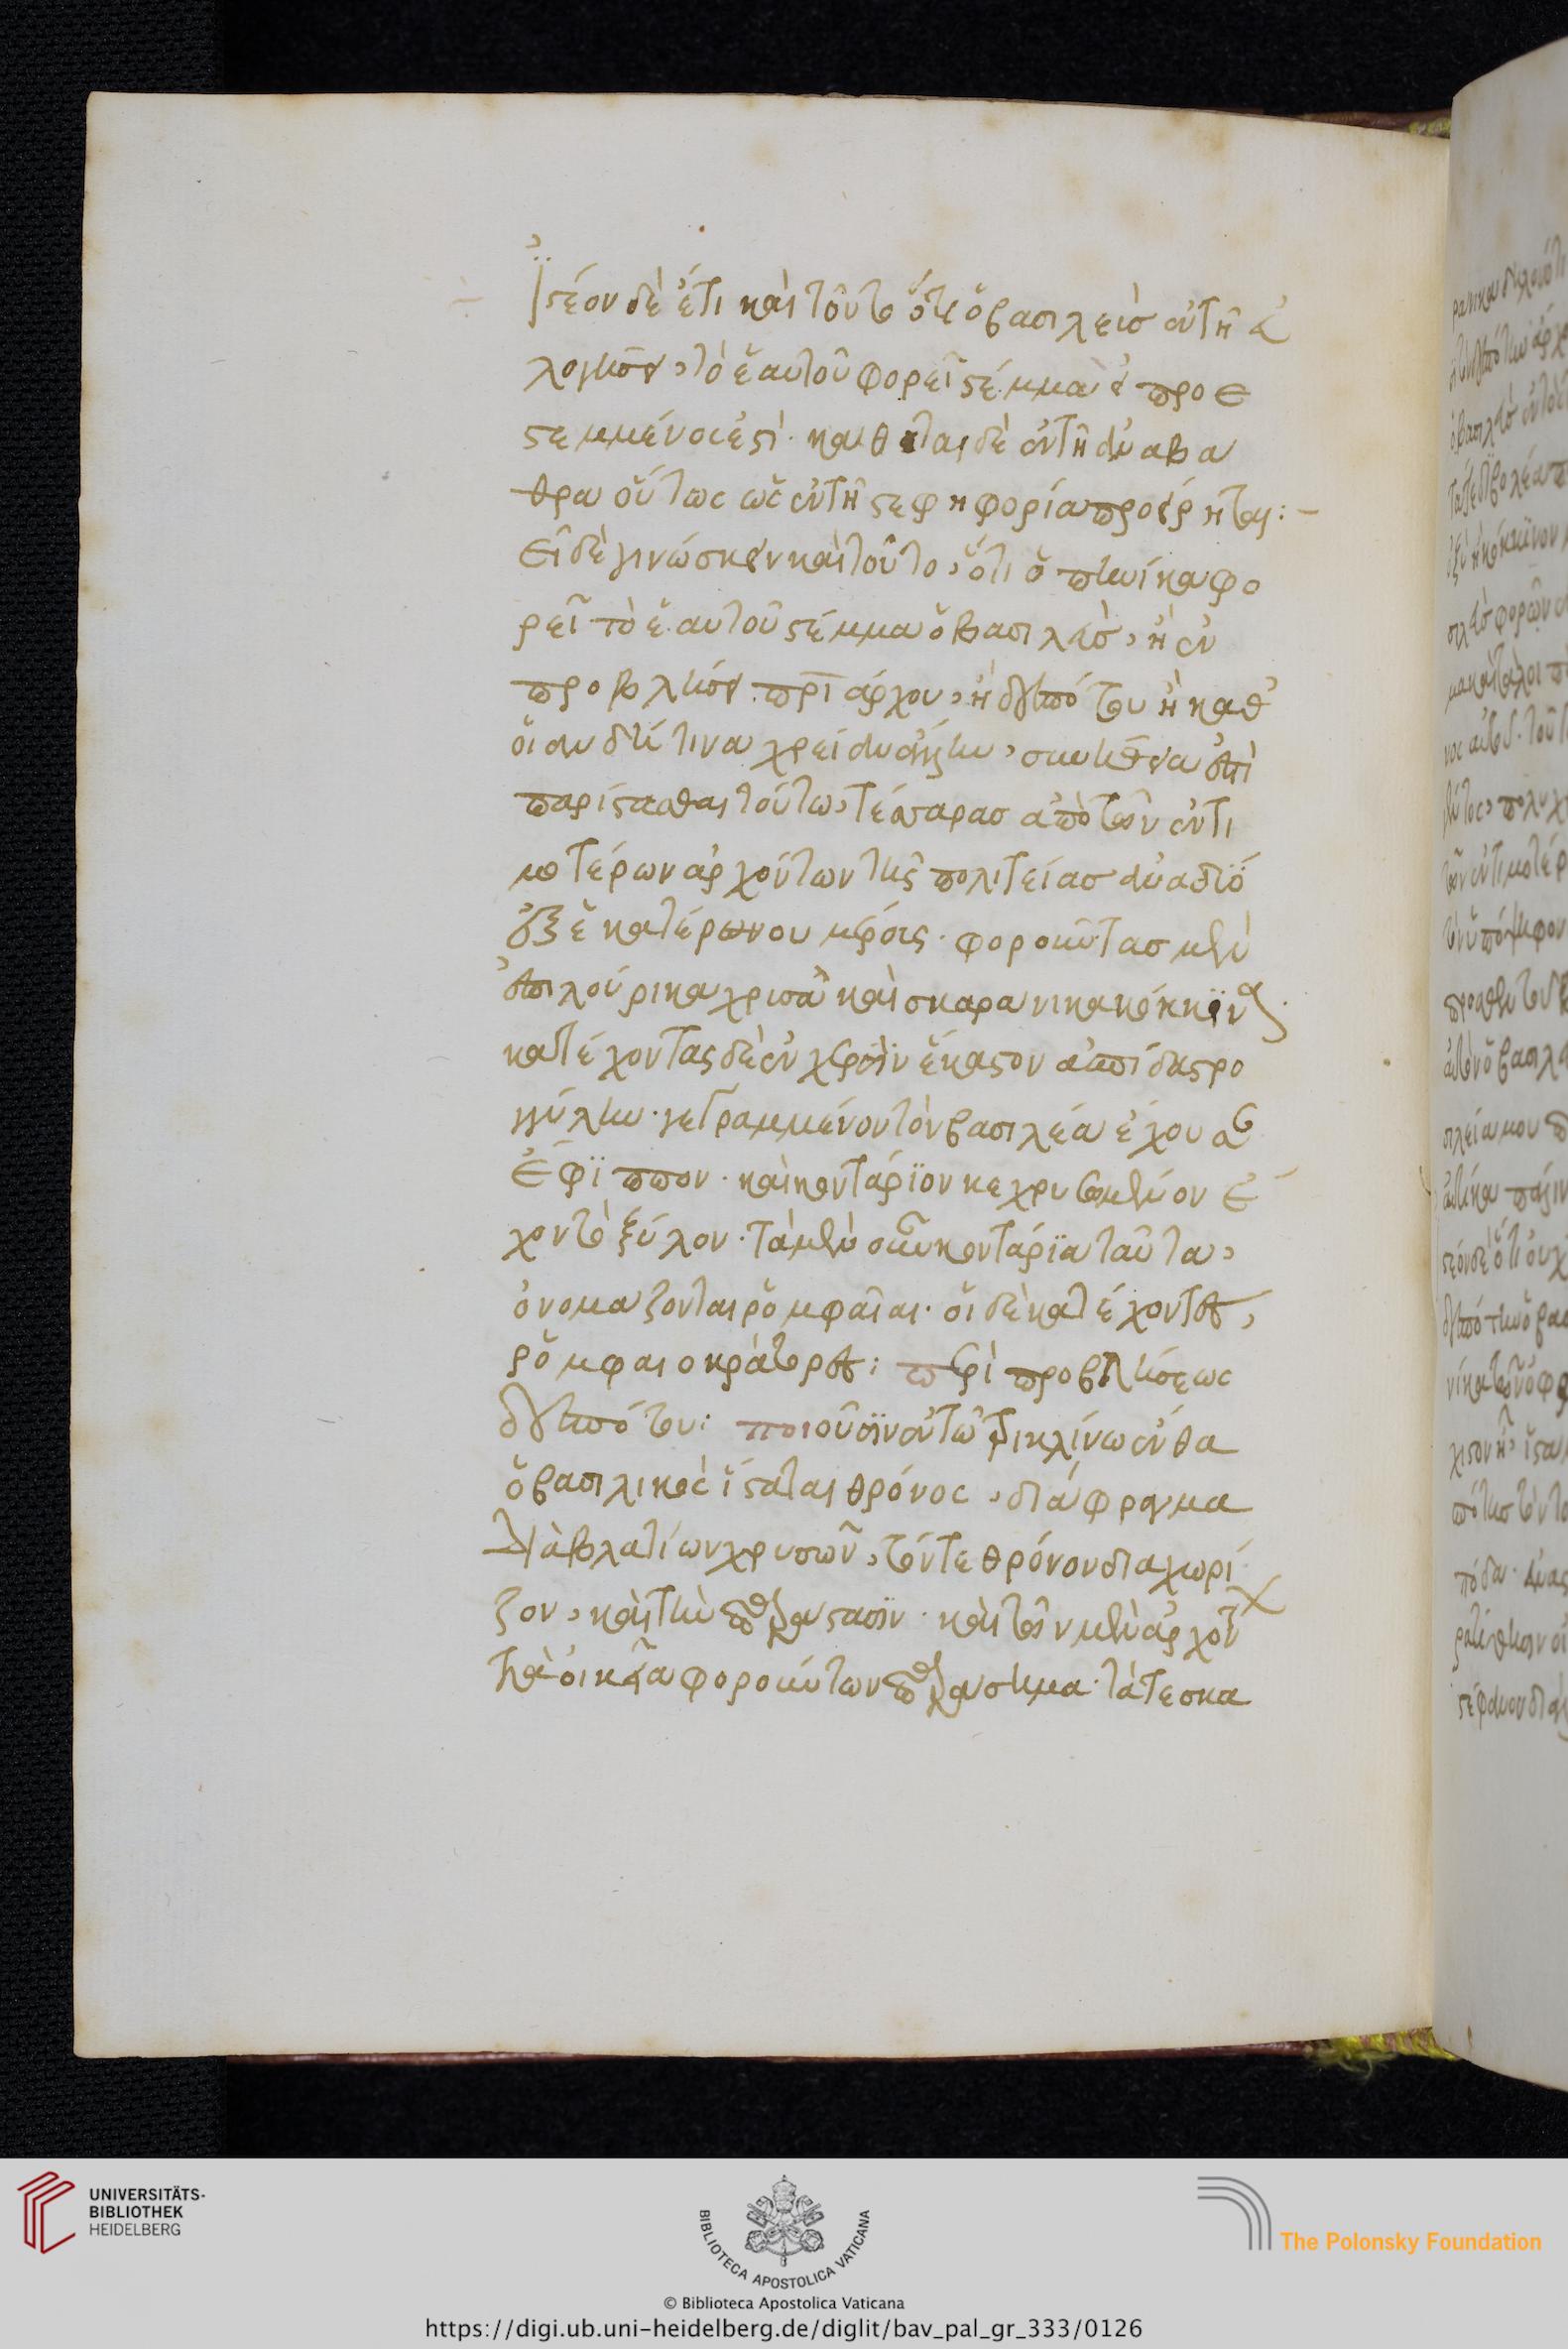 Ἰστέον δὲ ἔτι καὶ τοῦτο ὅτι ὁ βασιλεὺς ἐν τῇ ἐ
λογήσει, τὸ ἑαυτοῦ φορεῖ στέμμα εἰ προε
στεμμένος ἐστί· κάθηται δὲ ἐν τῇ ἀναβά
θρα οὕτως ὡς ἐν τῇ στεφηφορία προείρηται:
Εἰ δὲ γινώσκειν καὶ τοῦτο, ὅτι ὁπηνίκα φο
ρεῖ τὸ ἑαυτοῦ στέμμα ὁ βασιλεὺς, ἢ ἐν
προβλήσει πατριάρχου, ἢ δεσπότου ἢ καθ
οἱανδή τινα χρείαν ἄλλην, συνήθεια ἐστὶ
παρίστασθαι τούτω, τέσσαρας ἀπὸ τῶν ἐντι
μοτέρων ἀρχόντων τῆς πολιτείας ἀνὰ δύο
ἐξ ἑκατέρωνου μέρους· φοροῦντας μὲν
ἐπιλούρικα χρυσᾶ καὶ σκαράνικα κόκκινα
κατέχοντας δὲ ἐν χερσὶν ἕκαστον ἀσπίδα στρο
γγύλην· γεγραμμένον τὸν βασιλέα ἔχουσαν
ἔφιππον· καὶ κοντάριον κεχρυσωμένον ἔ
χον τὸ ξύλον· τὰ μὲν οὖν κοντάρια ταῦτα,
ὀνομάζονται ῥομφαῖαι· οἱ δὲ κατέχοντες,
ῥομφαιοκράτορες: περὶ προβλήσεως
δεσπότου: ποιοῦσιν ἐν τῷ τρικλίνω ἔνθα
ὁ βασιλικὸς ἵσταται θρόνος, διάφραγμα
διὰ βλατίων χρυσῶν, τόν τε θρόνον διαχωρί
ζον, καὶ τὴν παράστασιν· καὶ τῶν μὲν ἀρχόντων
τὰ οἰκεῖα φορούντων παράσημα· τά τε σκα
UNIVERSITÄTS-
BIBLIOTHEK
HEIDELBERG
BIBLIOTECA APOSTOLICA VATICANA
© Biblioteca Apostolica Vaticana
The Polonsky Foundation
https://digi.ub.uni-heidelberg.de/diglit/bav_pal_gr_333/0126